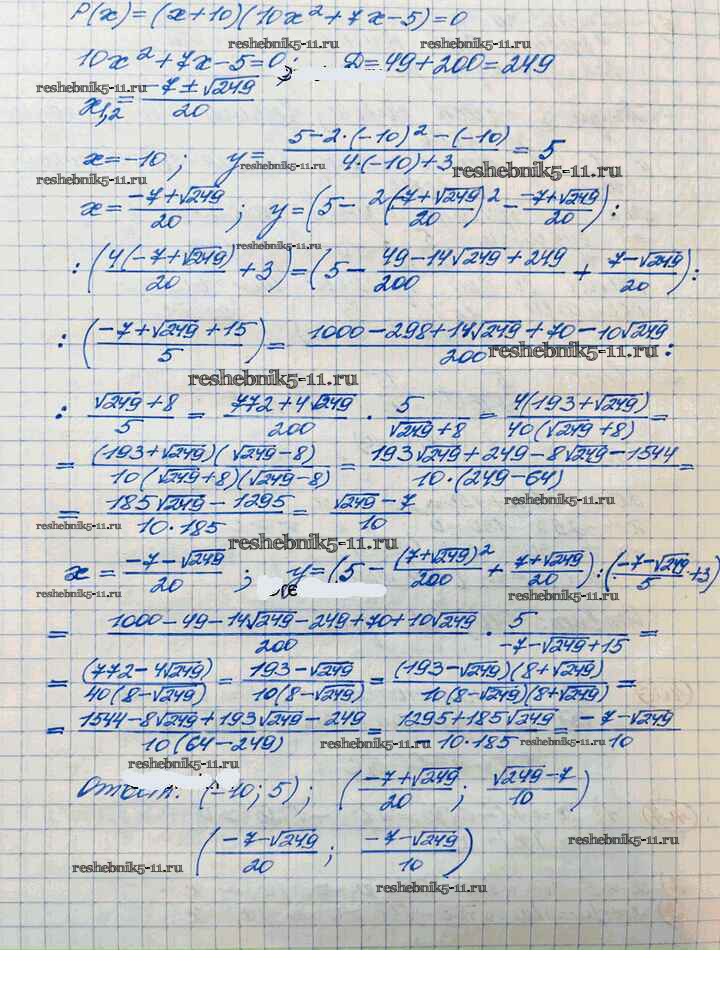 P(x) = (x+10)(10x² + 7x - 5) = 0
reshebnik5-11.ru reshebnik5-11.ru
10x² + 7x - 5 = 0; D = 49 + 200 = 249
reshebnik5-11.ru
x₁,₂ = (-7 ± √249)/20
x = -10; y = (5 - 2·(-10)² - (-10))/(4·(-10) + 3) = 5
reshebnik5-11.ru reshebnik5-11.ru reshebnik5-11.ru
x = (-7 + √249)/20; y = (5 - 2((-7 + √249)/20)² - (-7 + √249)/20) :
: (4(-7 + √249)/20 + 3) = (5 - (49 - 14√249 + 249)/200 + (7 - √249)/20) :
: ((-7 + √249 + 15)/5) = (1000 - 298 + 14√249 + 70 - 10√249)/200 :
reshebnik5-11.ru
reshebnik5-11.ru
: (√249 + 8)/5 = (772 + 4√249)/200 · 5/(√249 + 8) = 4(193 + √249)/(40(√249 + 8)) =
= (193 + √249)(√249 - 8)/(10(√249 + 8)(√249 - 8)) = (193√249 + 249 - 8√249 - 1544)/(10·(249 - 64)) =
reshebnik5-11.ru
= (185√249 - 1295)/(10·185) = (√249 - 7)/10
reshebnik5-11.ru
reshebnik5-11.ru
x = (-7 - √249)/20; y = (5 - (7 + √249)²/200 + (7 + √249)/20) : ((-7 - √249)/5 + 3)
reshebnik5-11.ru reshebnik5-11.ru
= (1000 - 49 - 14√249 - 249 + 70 + 10√249)/200 · 5/(-7 - √249 + 15) =
= (772 - 4√249)/(40(8 - √249)) = (193 - √249)/(10(8 - √249)) = (193 - √249)(8 + √249)/(10(8 - √249)(8 + √249)) =
= (1544 - 8√249 + 193√249 - 249)/(10(64 - 249)) = (1295 + 185√249)/(-10·185) = (-7 - √249)/10
reshebnik5-11.ru reshebnik5-11.ru
reshebnik5-11.ru
(-10; 5); ((-7 + √249)/20; (√249 - 7)/10)
((-7 - √249)/20; (-7 - √249)/10)
reshebnik5-11.ru reshebnik5-11.ru
reshebnik5-11.ru